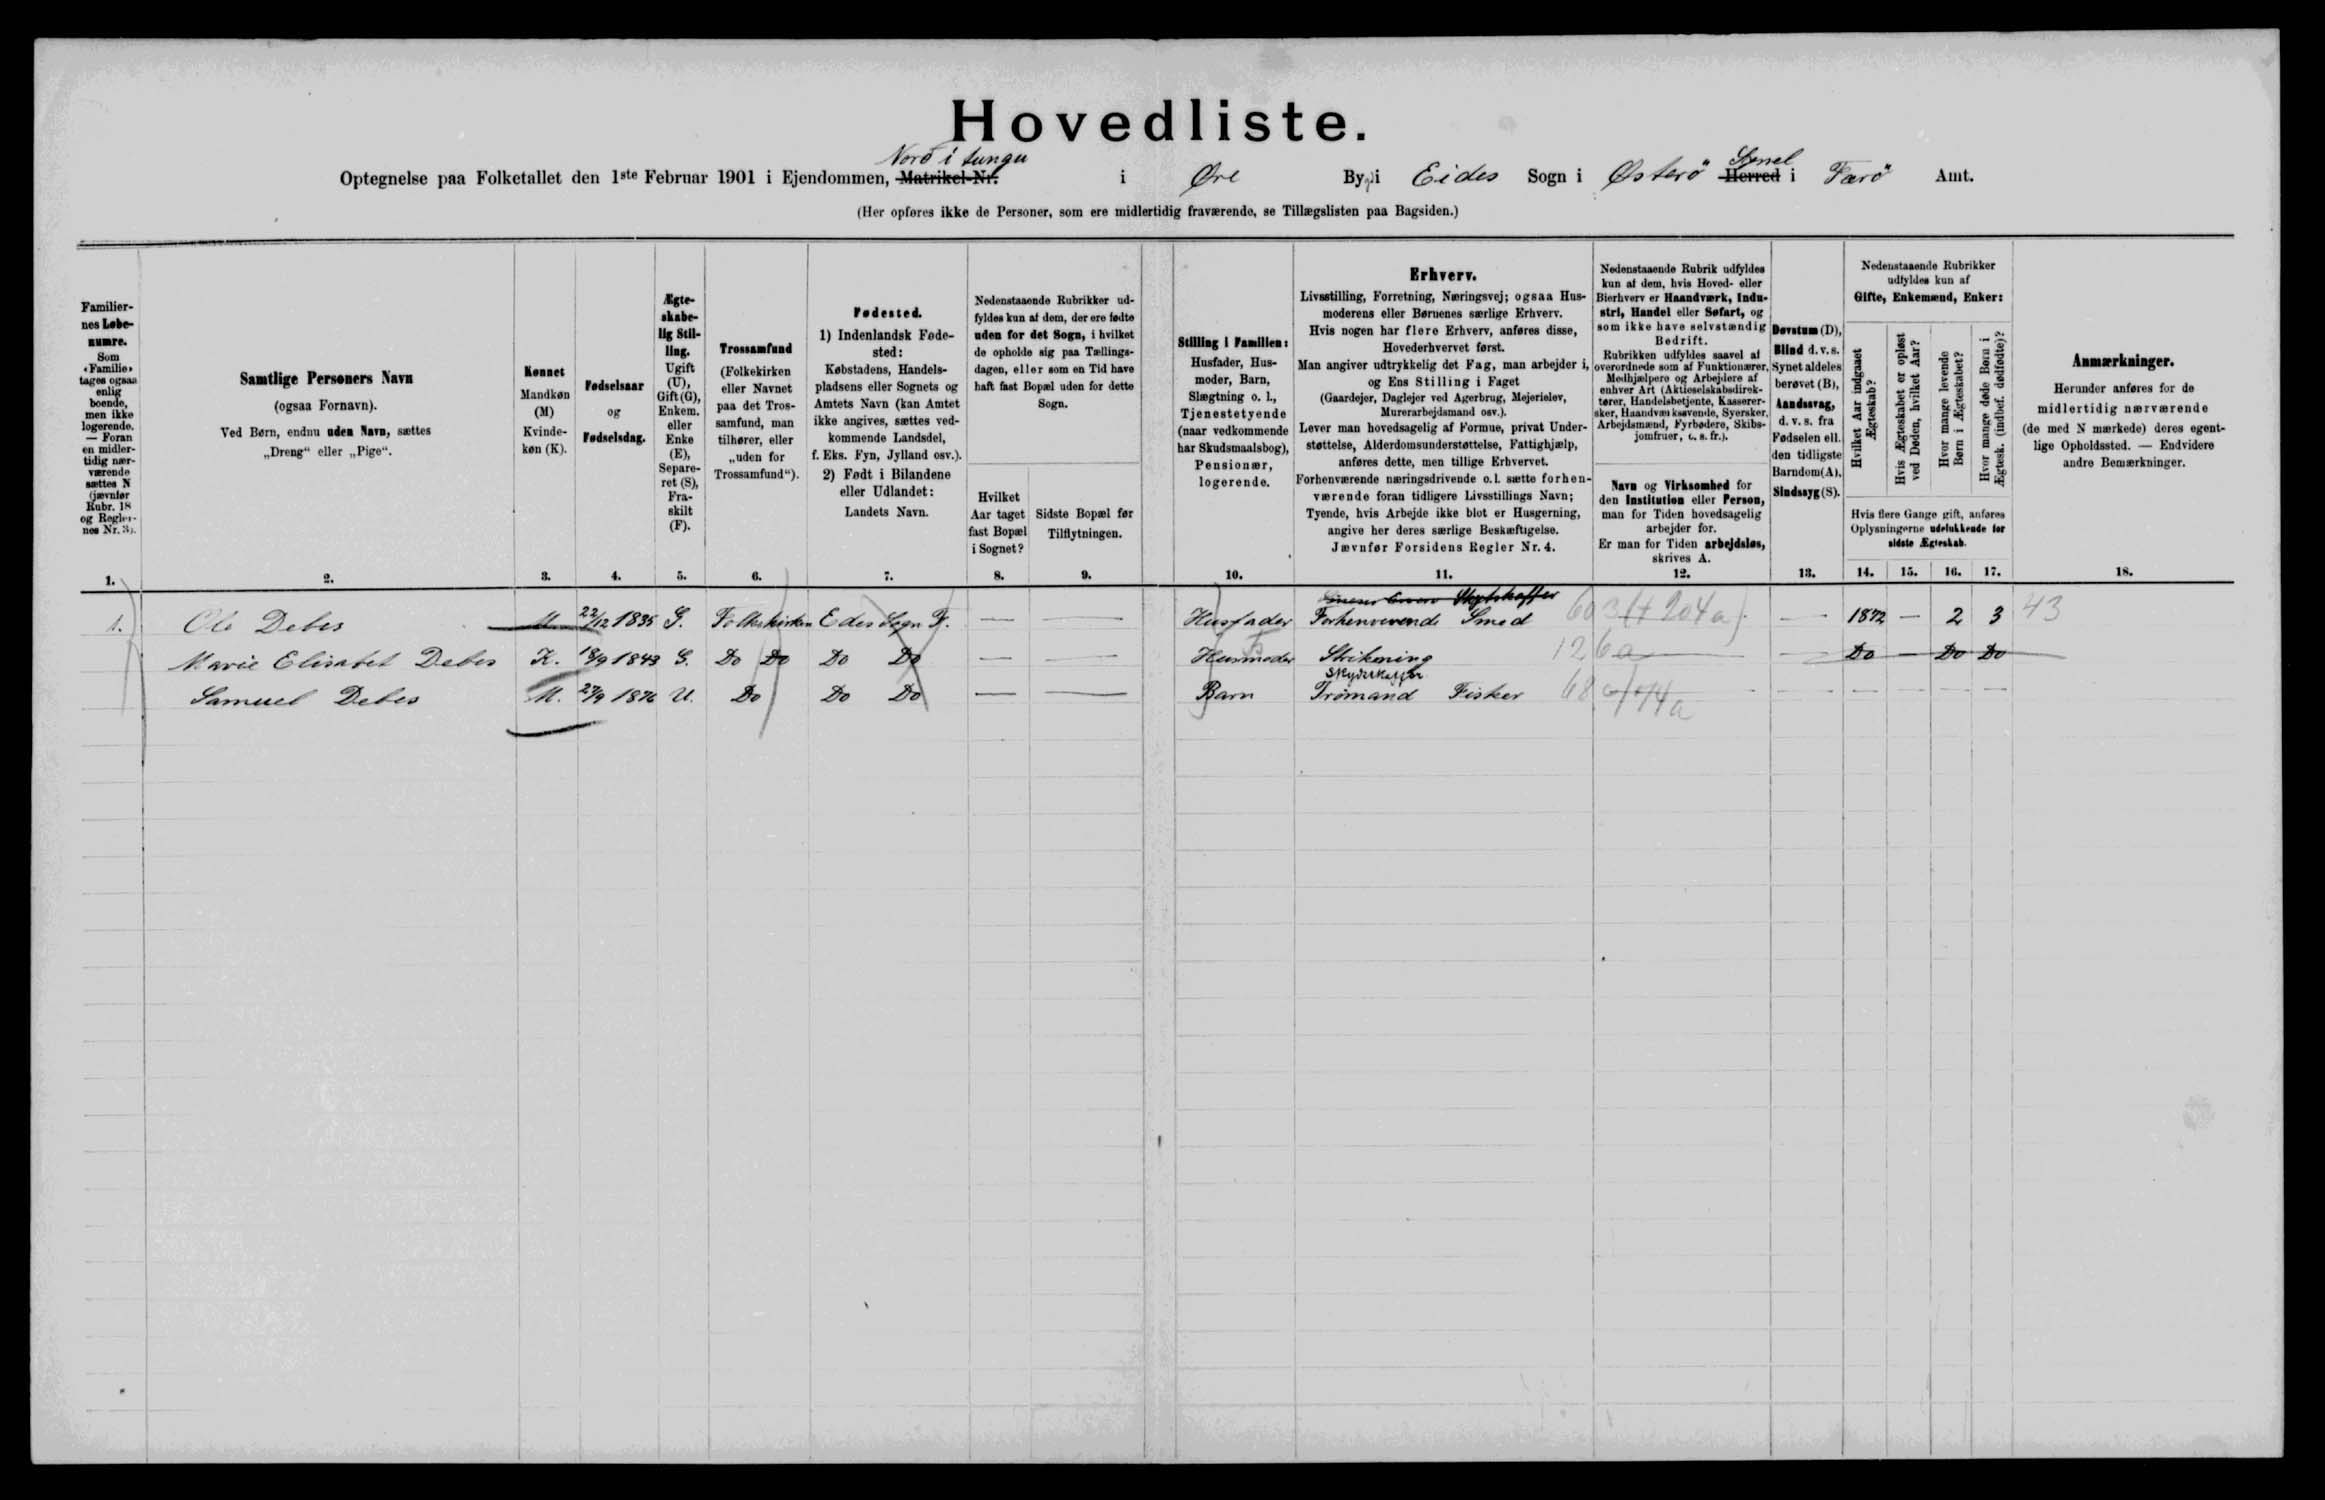 Hovedliste.
Nord i tungu
Optegnelse paa Folketallet den 1ste Februar 1901 i Ejendommen, Matrikel-Nr. i Øre Bygd i Eides Sogn i Østerö Herred i Færö Amt.
(Her opføres ikke de Personer, som ere midlertidig fraværende, se Tillægslisten paa Bagsiden.)
Familier-
nes Løbe-
numre.
Som
«Familie»
tages ogsaa
enlig
boende,
men ikke
logerende.
— Foran
en midler-
tidig nær-
værende
sættes N
(jævnfør
Rubr. 18
og Regler-
nes Nr. 3).
1.
Samtlige Personers Navn
(ogsaa Fornavn).
Ved Børn, endnu uden Navn, sættes
„Dreng“ eller „Pige“.
2.
Kønnet
Mandkøn
(M)
Kvinde-
køn (K).
3.
Fødselsaar
og
Fødselsdag.
4.
Ægte-
skabe-
lig Stil-
ling.
Ugift
(U),
Gift (G),
Enkem.
eller
Enke
(E),
Separe-
ret (S),
Fra-
skilt
(F).
5.
Trossamfund
(Folkekirken
eller Navnet
paa det Tros-
samfund, man
tilhører, eller
„uden for
Trossamfund“).
6.
Fødested.
1) Indenlandsk Føde-
sted:
Købstadens, Handels-
pladsens eller Sognets og
Amtets Navn (kan Amtet
ikke angives, sættes ved-
kommende Landsdel,
f. Eks. Fyn, Jylland osv.).
2) Født i Bilandene
eller Udlandet:
Landets Navn.
7.
Nedenstaaende Rubrikker ud-
fyldes kun af dem, der ere fødte
uden for det Sogn, i hvilket
de opholde sig paa Tællings-
dagen, eller som en Tid have
haft fast Bopæl uden for dette
Sogn.
Hvilket
Aar taget
fast Bopæl
i Sognet?
8.
Sidste Bopæl før
Tilflytningen.
9.
Stilling i Familien:
Husfader, Hus-
moder, Barn,
Slægtning o. l.,
Tjenestetyende
(naar vedkommende
har Skudsmaalsbog),
Pensionær,
logerende.
10.
Erhverv.
Livsstilling, Forretning, Næringsvej; ogsaa Hus-
moderens eller Børnenes særlige Erhverv.
Hvis nogen har flere Erhverv, anføres disse,
Hovederhvervet først.
Man angiver udtrykkelig det Fag, man arbejder i,
og Ens Stilling i Faget
(Gaardejer, Daglejer ved Agerbrug, Mejerielev,
Murerarbejdsmand osv.).
Lever man hovedsagelig af Formue, privat Under-
støttelse, Alderdomsunderstøttelse, Fattighjælp,
anføres dette, men tillige Erhvervet.
Forhenværende næringsdrivende o. l. sætte forhen-
værende foran tidligere Livsstillings Navn;
Tyende, hvis Arbejde ikke blot er Husgerning,
angive her deres særlige Beskæftigelse.
Jævnfør Forsidens Regler Nr. 4.
11.
Nedenstaaende Rubrik udfyldes
kun af dem, hvis Hoved- eller
Bierhverv er Haandværk, Indu-
stri, Handel eller Søfart, og
som ikke have selvstændig
Bedrift.
Rubrikken udfyldes saavel af
overordnede som af Funktionærer,
Medhjælpere og Arbejdere af
enhver Art (Aktieselskabsdirek-
tører, Handelsbetjente, Kasserer-
sker, Haandværksøvende, Syersker,
Arbejdsmænd, Fyrbødere, Skibs-
jomfruer, o. s. fr.).
Navn og Virksomhed for
den Institution eller Person,
man for Tiden hovedsagelig
arbejder for.
Er man for Tiden arbejdsløs,
skrives A.
12.
Døvstum (D),
Blind d. v. s.
Synet aldeles
berøvet (B),
Aandssvag,
d. v. s. fra
Fødselen ell.
den tidligste
Barndom (A),
Sindssyg (S).
13.
Nedenstaaende Rubrikker
udfyldes kun af
Gifte, Enkemænd, Enker:
Hvilket Aar indgaaet
Ægteskab?
Hvis Ægteskabet er opløst
ved Døden, hvilket Aar?
Hvor mange levende
Børn i Ægteskabet?
Hvor mange døde Børn i
Ægtesk. (indbef. dødfødte)?
Hvis flere Gange gift, anføres
Oplysningerne udelukkende for
sidste Ægteskab.
14. 15. 16. 17.
Anmærkninger.
Herunder anføres for de
midlertidig nærværende
(de med N mærkede) deres egent-
lige Opholdssted. — Endvidere
andre Bemærkninger.
18.
Skytskaffer
1. Ole Debes M. 22/12 1835 G. Folkekirken Edes Sogn F. — — Husfader Forhenverende Smed 603 (+ 204 a) — 1872 — 2 3 43
Marie Elisabet Debes K. 18/9 1843 G. Do Do Do Do — — Husmoder Strikening 126a — Do — Do Do
Skydskaffer
Samuel Debes M. 27/9 1876 U. Do Do Do — — Barn Trømand Fisker — — — — —